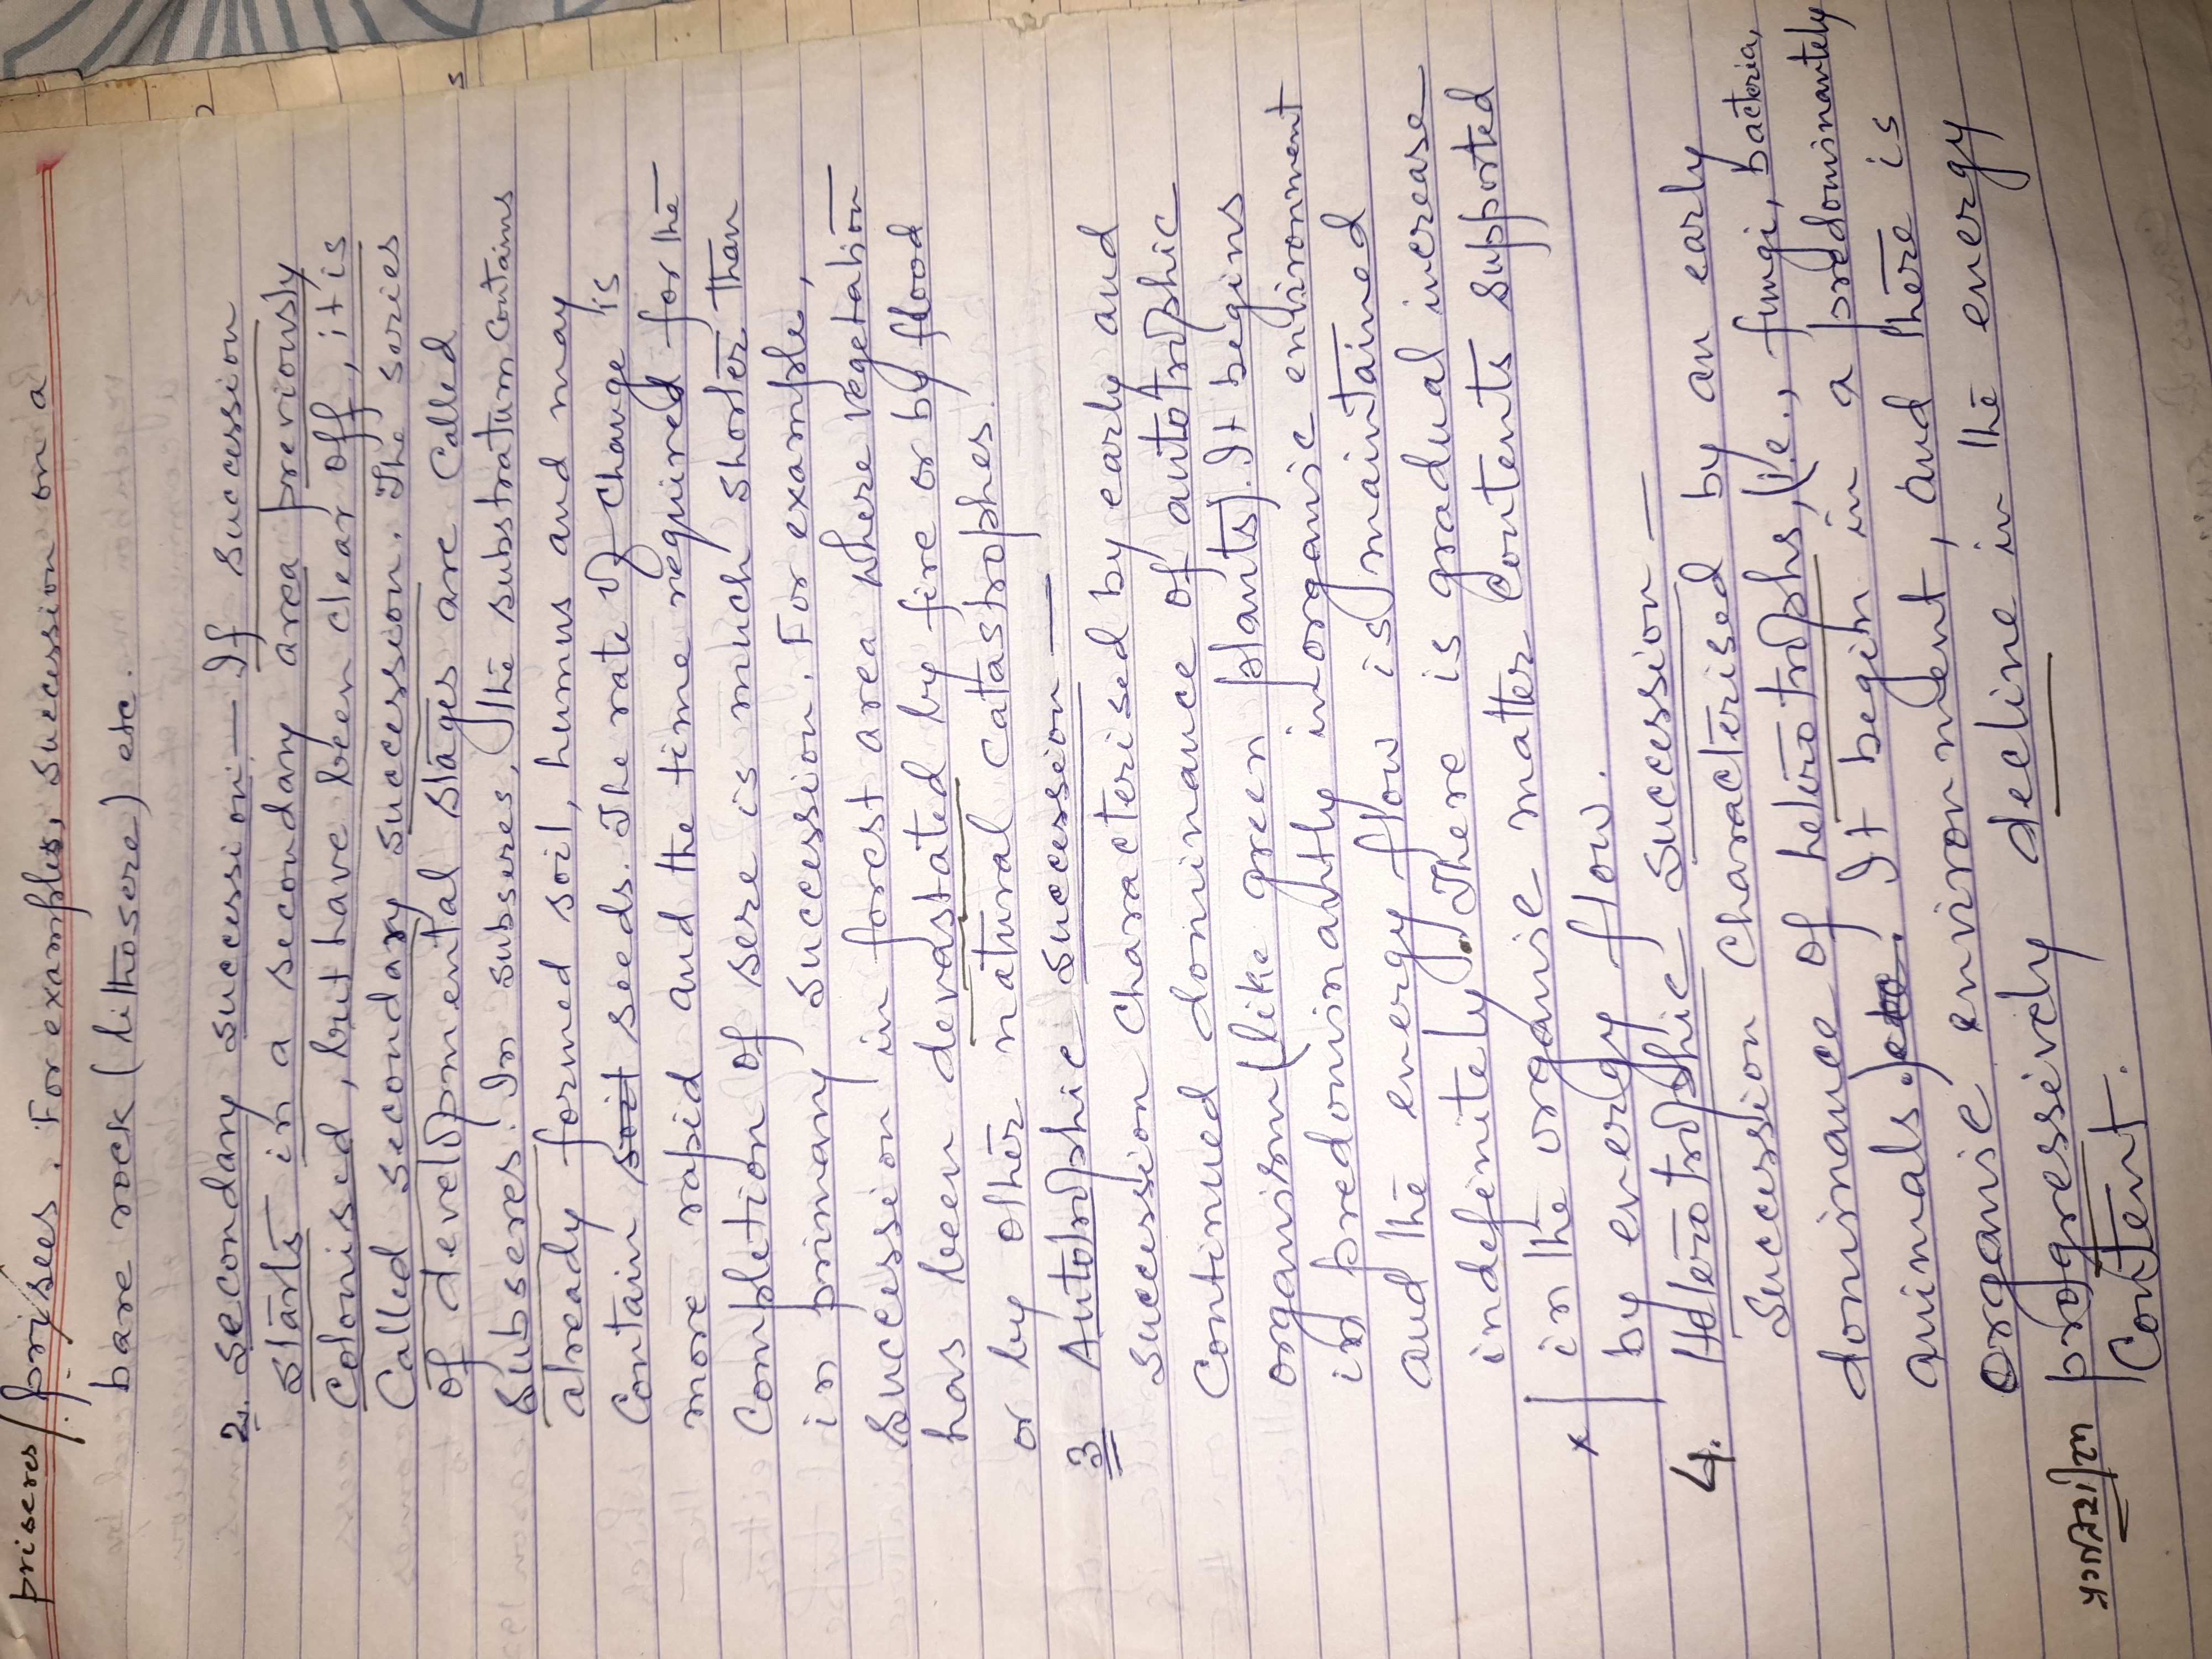 priseres/prisees. For examples, succession on a
bare rock (lithosere) etc.
2. Secondary succession:— If succession
starts in a secondary area previously
colonised, but have been clear off, it is
called secondary succession. The series
of developmental stages are called
subseres. In subseres, the substratum contains
already formed soil, humus and may
contain soil seeds. The rate of change is
more rapid and the time required for the
completion of sere is much shorter than
in primary succession. For example,
succession in forest area where vegetation
has been devastated by fire or by flood
or by other natural catastrophes.
3 Autotrophic succession —
succession characterised by early and
continued dominance of autotrophic
organism (like green plants). It begins
in predominantly inorganic environment
and the energy flow is maintained
indefinitely. There is gradual increase
* in the organic matter contents supported
by energy flow.
4. Heterotrophic succession —
Succession characterised by an early
dominance of heterotrophs, (i.e., fungi, bacteria,
animals. etc. It begin in a predominantely
organic environment, and there is
progressively decline in the energy
content.